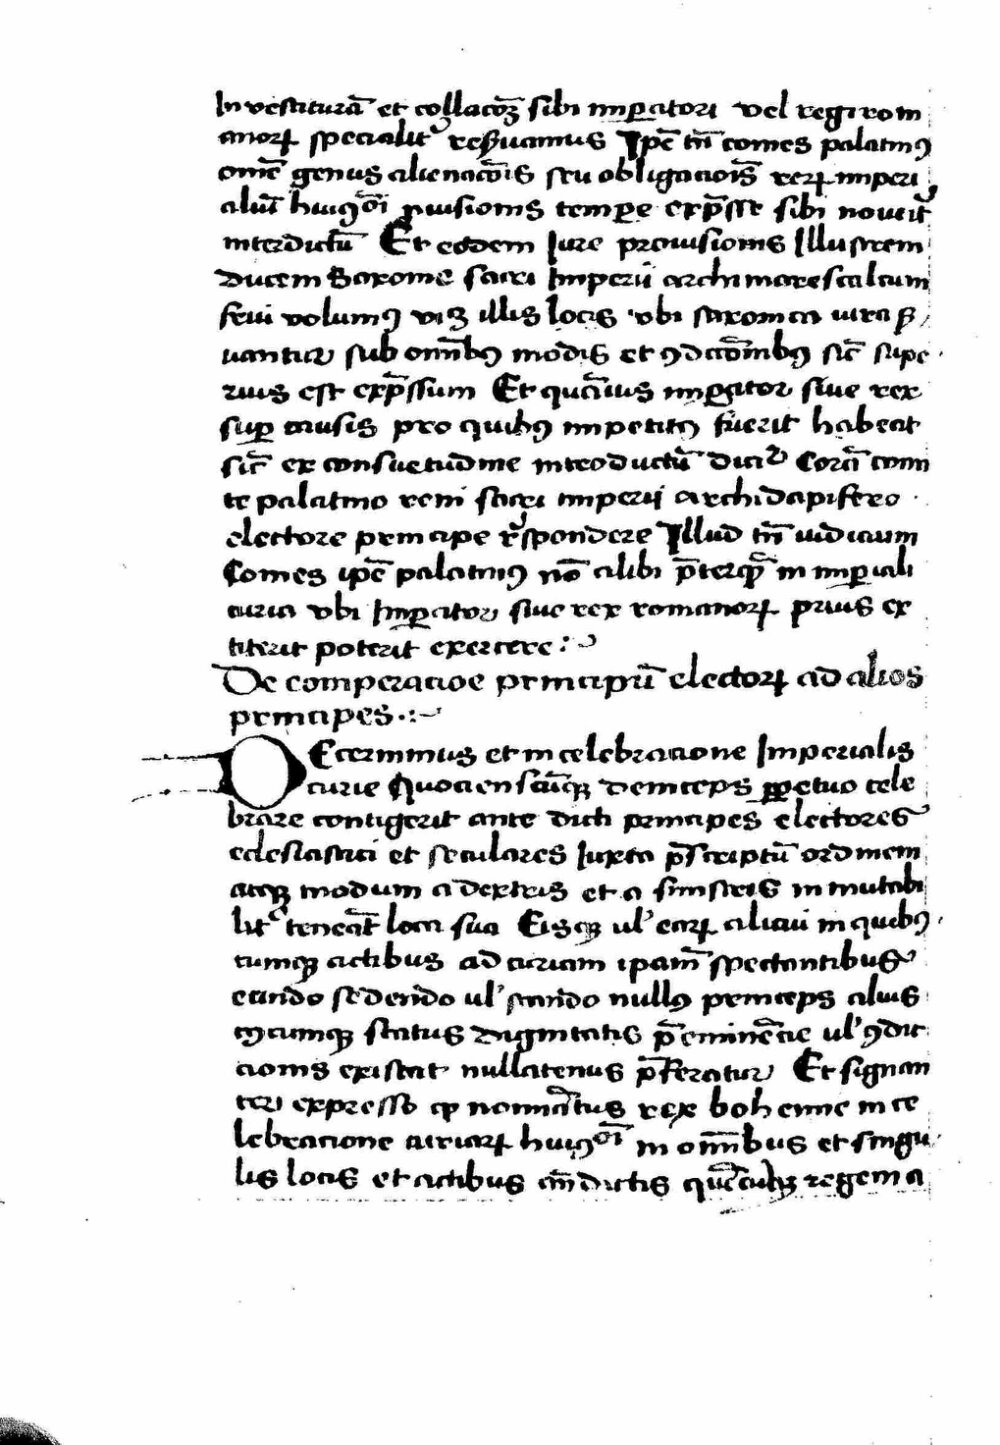 Investiturā et collacōꝫ sibi imꝑatori vel regi rom
anoꝝ specialitʼ reẜuamus Ipē tn̄ comes palatinꝯ
omē genus alienacōis seu obligacōis reꝝ imperi
aliū huiꝯōi ꝓuisionis tempore exp̄sse sibi nouerit
interdictū Et eodem Iure prouisionis Illustrem
Ducem Saxonie sacri Imperii archimarescalcum
frui volumꝯ viꝫ illis locis vbi saxonica iura ẜ
uantur sub om̄ibꝯ modis et ꝯdicōnibꝯ sic̄ supe
rius est exp̄ssum Et quāuis imꝑator siue rex
suꝑ causis pro quibꝯ impetitꝯ fuerit habeat
sic̄ ex consuetudine introductū dicit᷑ Corā comi
te palatino reni sacri imperii archidapifero
electore principe respondere Illud tn̄ iudicium
Comes ipē palatinꝯ nō alibi p̄terqꝫ in imꝑiali
curia vbi Imꝑator siue rex romanoꝝ prius ex
titerit poterit exercere :~
De comperacioe principū electoꝝ ad alios
principes.:~
Decernimus et in celebracione Imperialis
curie Quociensciūqꝫ deinceps ꝑpetuo cele
brare contigerit ante dicti principes electores
eclesiastici et seculares Iuxta p̄scriptū ordinem
atqꝫ modum a dextris et a sinistris in mutabi
litʼ teneāt loca sua Eisqꝫ ulʼ eaꝝ alicui in quibꝯ
cumqꝫ actibus ad curiam ipam̄ spectantibus
eundo sedendo ulʼ stando nullꝯ princeps alius
cꝯcumqꝫ status dignitatis p̄eminēcie ulʼ ꝯdic
cionis existat nullatenus p̄feratur Et signan
ter expresso ꝙ nominātus rex bohemie in ce
lebracione curiaꝝ huiꝯōi in om̄ibus et singu
lis locis et actibus an̄dictis quēcūqꝫ regem a